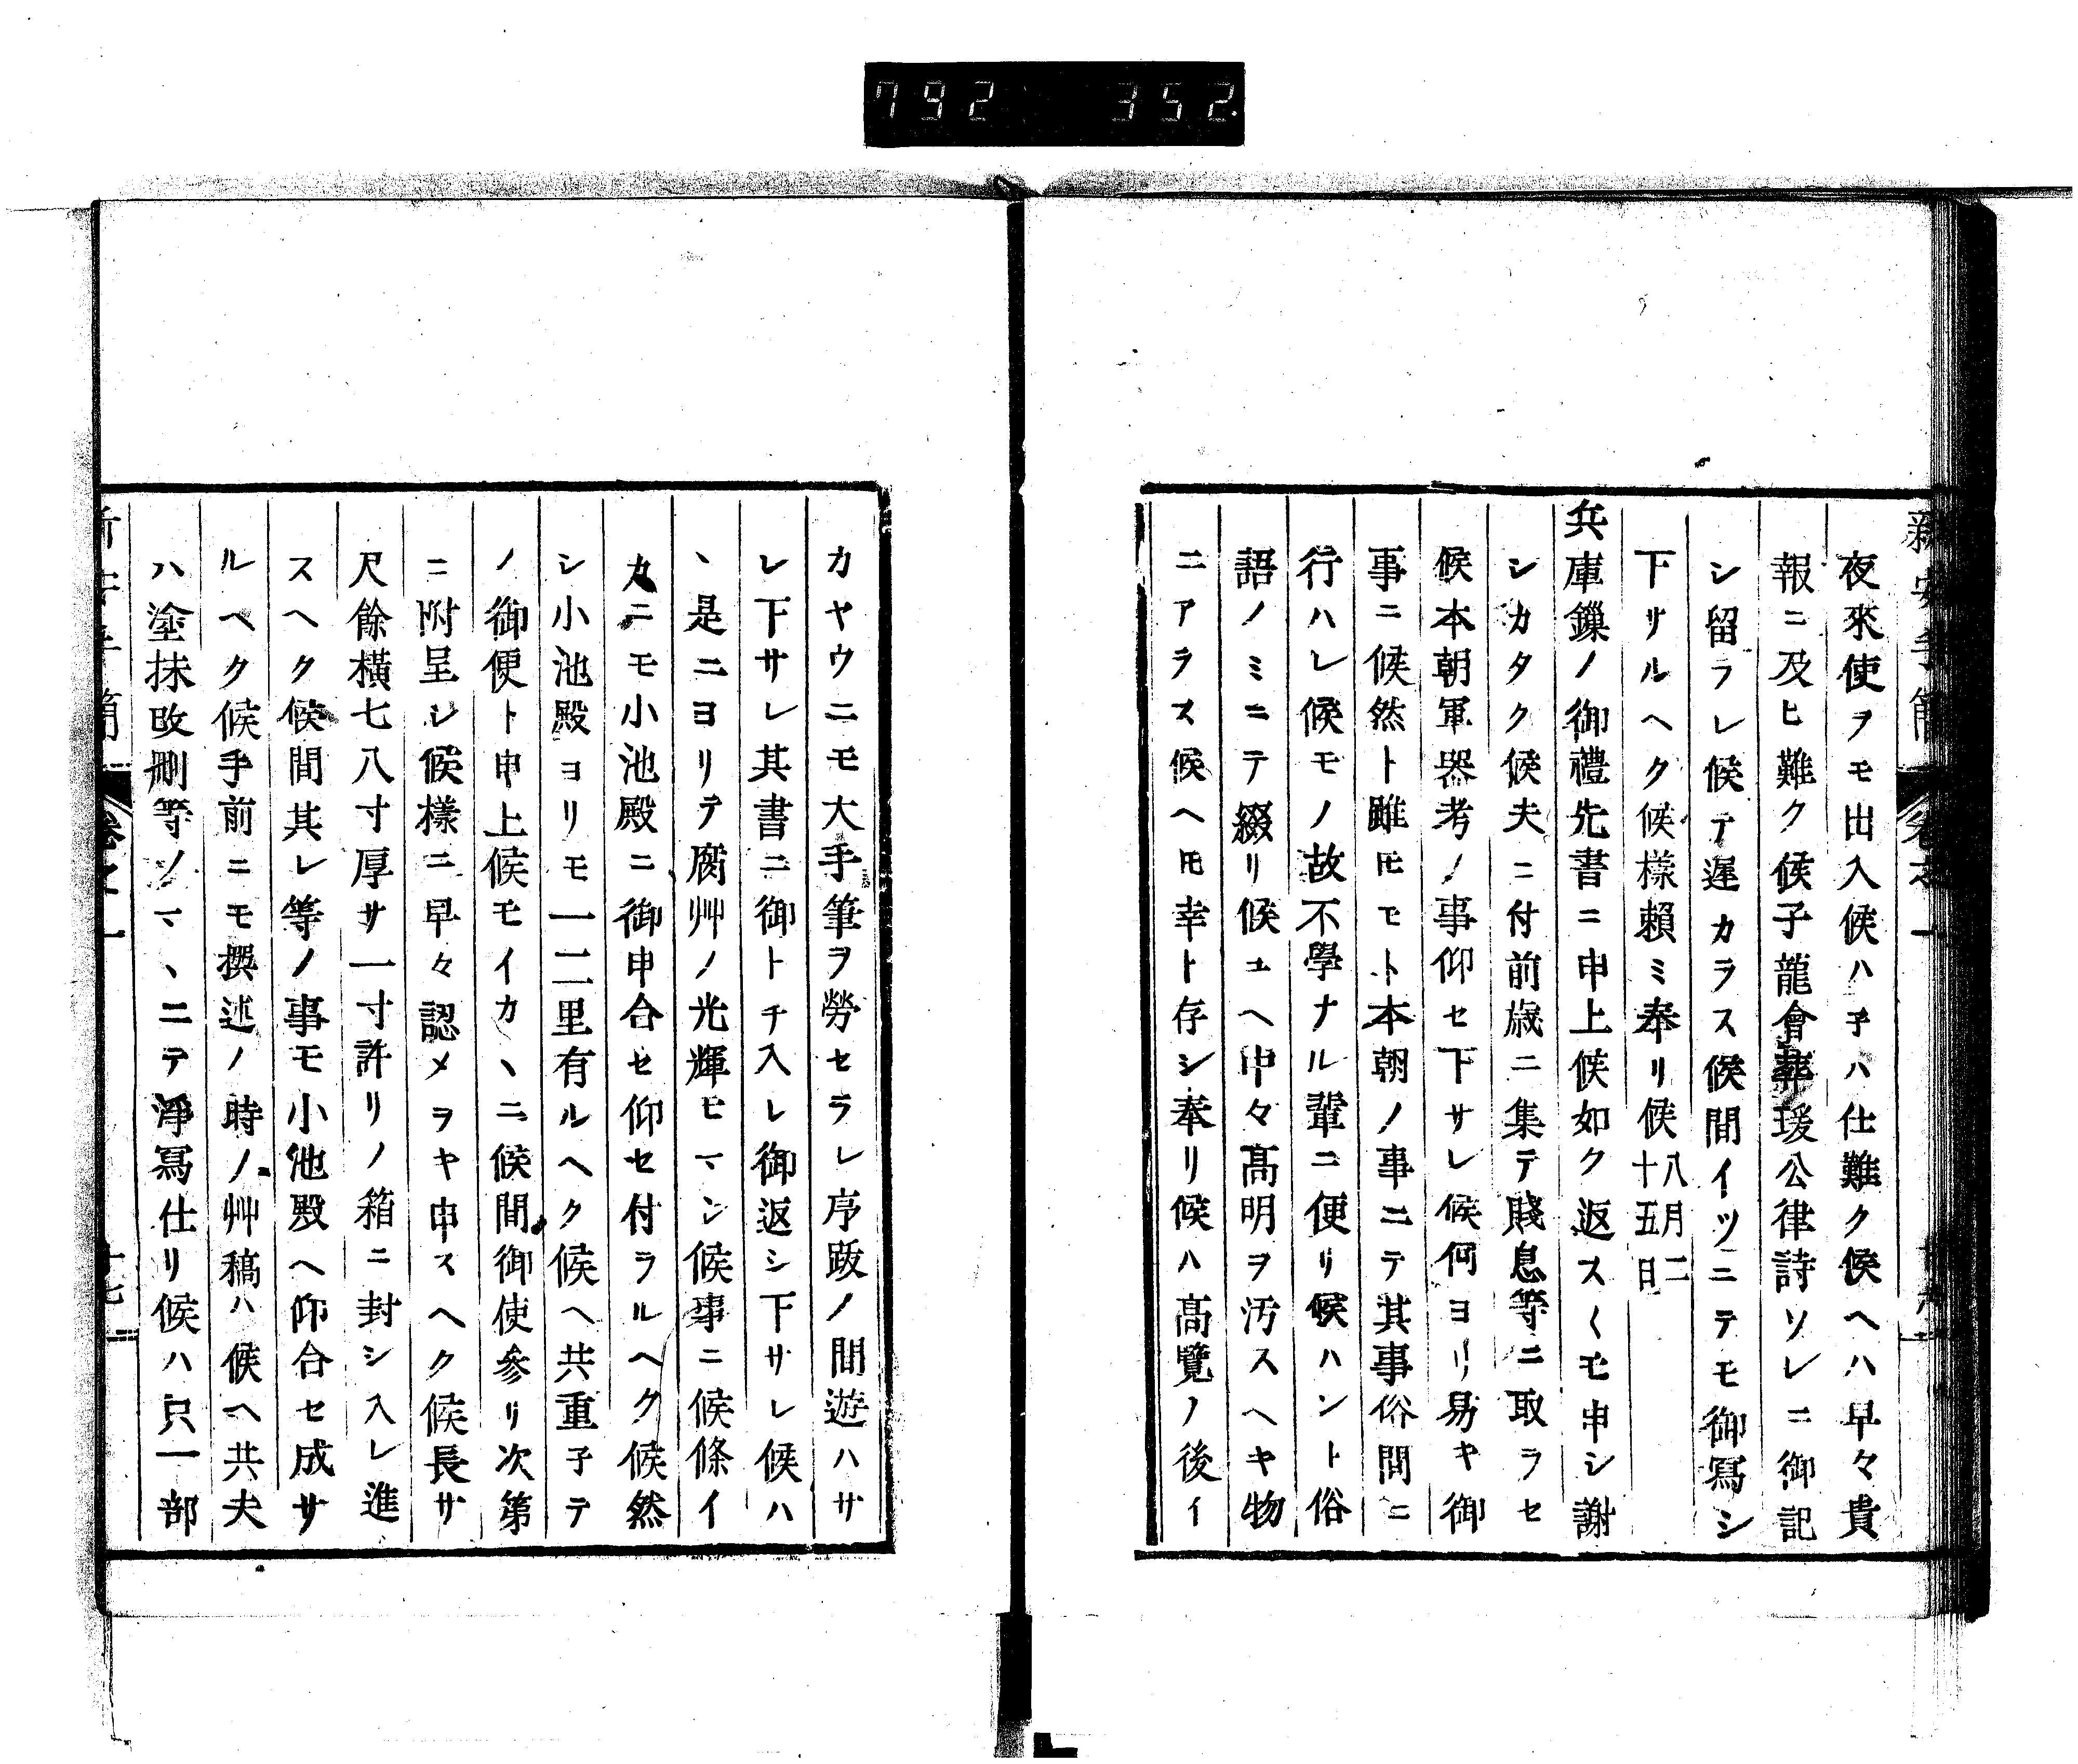 792 352.
新安手簡 卷之一
夜來使ヲモ出入候ハ子ハ仕難ク候ヘハ早々貴
報ニ及ヒ難ク候子龍會葬瑗公律詩ソレニ御記
シ留ラレ候テ遲カラス候間イツニテモ御寫シ
下サルヘク候樣賴ミ奉リ候八月二十五日
兵庫鏁ノ御禮先書ニ申上候如ク返スくモ申シ謝
シカタク候夫ニ付前歳ニ集テ賤息等ニ取ラセ
候本朝軍器考ノ事仰セ下サレ候何ヨリ易キ御
事ニ候然ト雖モモト本朝ノ事ニテ其事俗間ニ
行ハレ候モノ故不學ナル輩ニ便リ候ハント俗
語ノミニテ綴リ候ユヘ中々髙明ヲ汚スヘキ物
ニアラス候ヘ𪜈幸ト存シ奉リ候ハ髙覽ノ後イ
カヤウニモ大手筆ヲ勞セラレ序跋ノ間遊ハサ
レ下サレ其書ニ御トチ入レ御返シ下サレ候ハ
丶是ニヨリテ腐艸ノ光輝ヒマシ候事ニ候條イ
カニモ小池殿ニ御申合セ仰セ付ラルヘク候然
シ小池殿ヨリモ一二里有ルヘク候ヘ共重子テ
ノ御便ト申上候モイカ丶ニ候間御使參リ次第
ニ附呈シ候樣ニ早々認メヲキ申スヘク候長サ
尺餘橫七八寸厚サ一寸許リノ箱ニ封シ入レ進
スヘク候間其レ等ノ事モ小池殿ヘ仰合セ成サ
ルヘク候手前ニモ撰述ノ時ノ艸稿ハ候ヘ共夫
ハ塗抹改刪等ノマ丶ニテ淨寫仕リ候ハ只一部
新安手簡 卷之一 十七